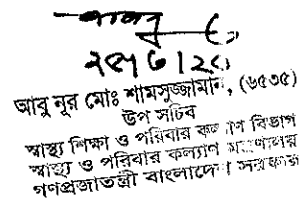 আবু নূর মোঃ শামসুজ্জামান, (৬৫৩৫)
উপ সচিব
স্বাস্থ্য শিক্ষা ও পরিবার কল্যাণ বিভাগ
স্বাস্থ্য ও পরিবার কল্যাণ মন্ত্রণালয়
গণপ্রজাতন্ত্রী বাংলাদেশ সরকার